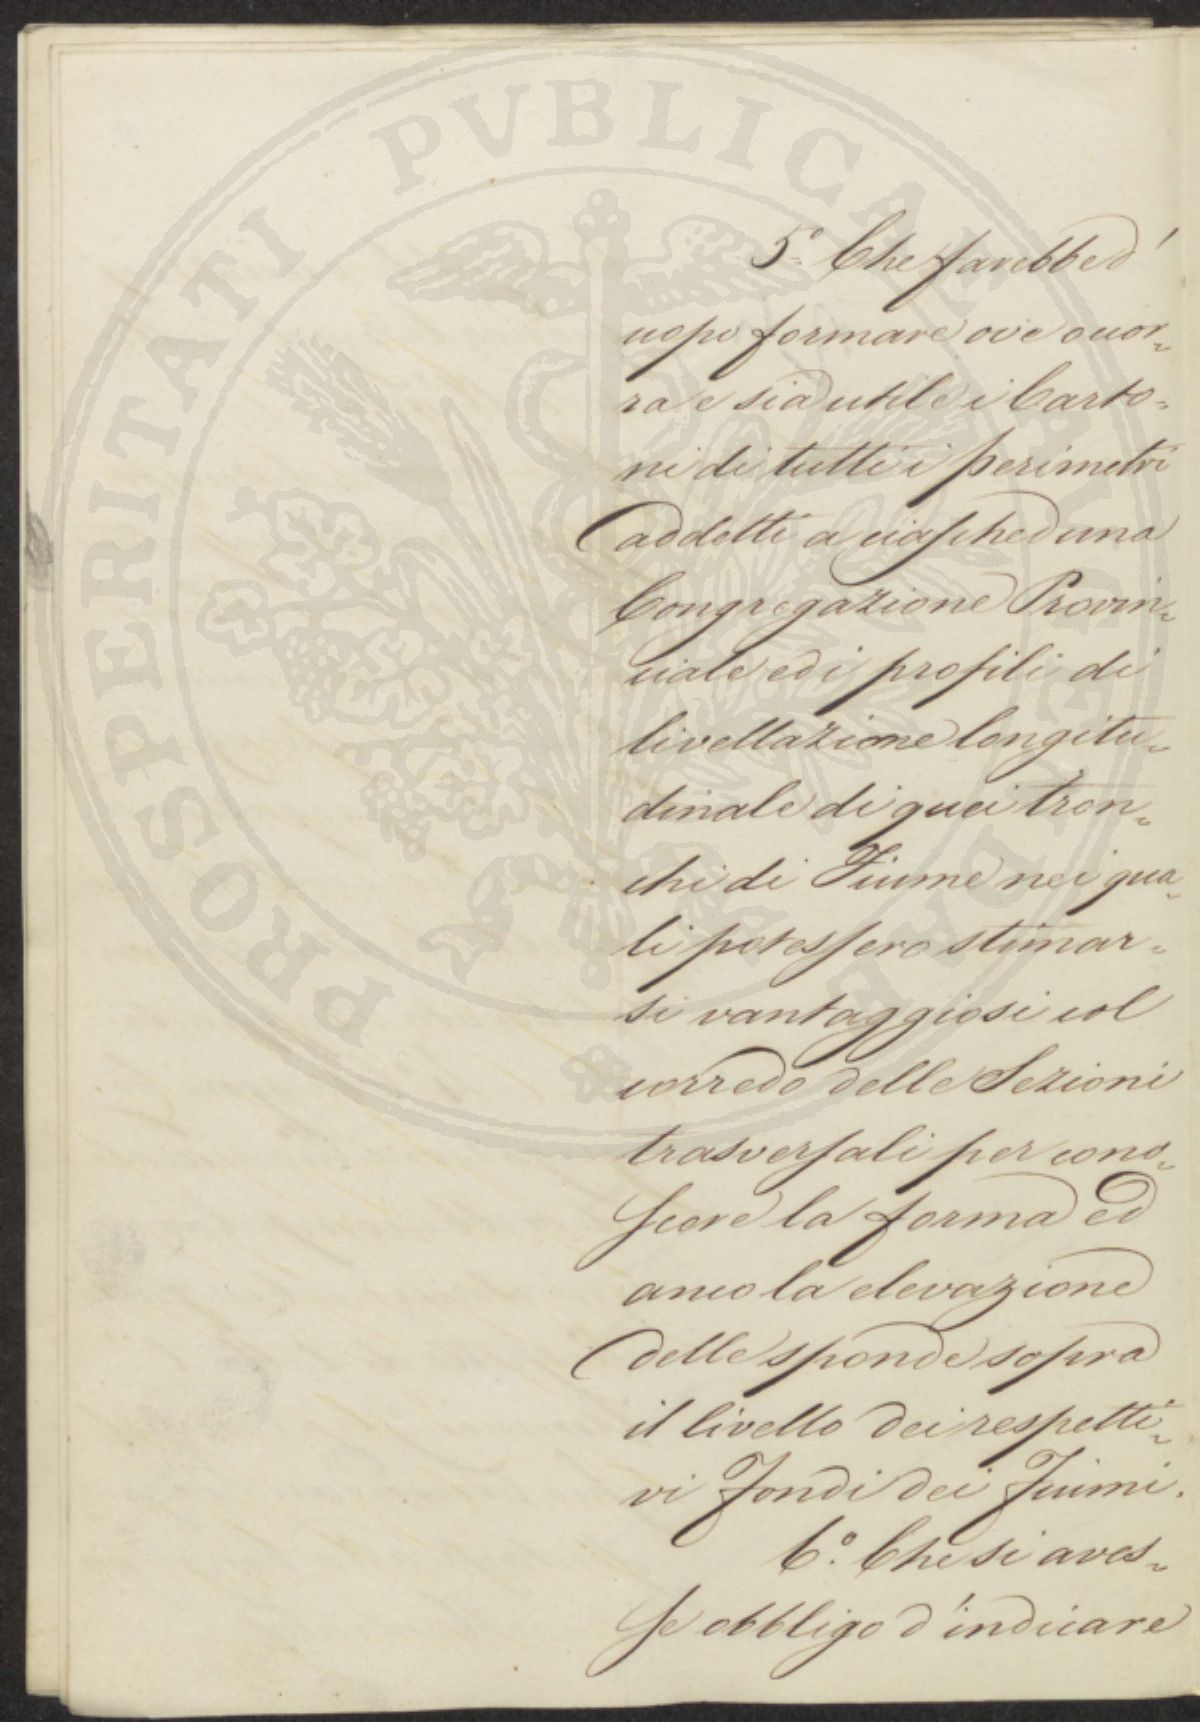 PROSPERITATI PVBLICAE AVGENDAE
5.° Che sarebbe d'
uopo formare ove occor=
ra e sia utile i Carto=
ni di tutti i perimetri
addetti a ciascheduna
Congregazione Provin=
ciale ed i profili di
livellazione longitu=
dinale di quei tron=
chi di Fiume nei qua=
li potessero stimar=
si vantaggiosi col
corredo delle Sezioni
trasversali per cono=
scere la forma ed
anco la elevazione
delle sponde sopra
il livello dei respetti=
vi Fondi dei Fiumi.
6.° Che si aves=
se obbligo d'indicare